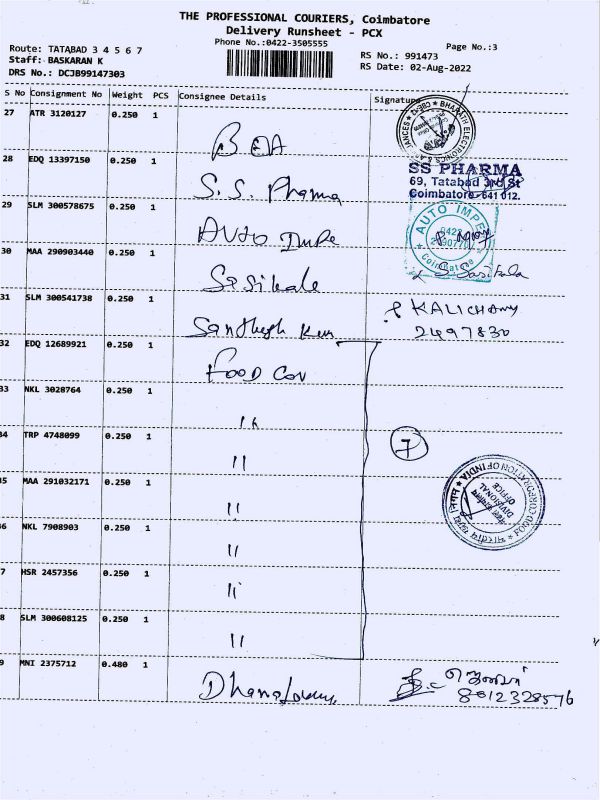 THE PROFESSIONAL COURIERS, Coimbatore
Delivery Runsheet - PCX
Phone No.:0422-3505555
Page No.:3
Route: TATABAD 3 4 5 6 7
Staff: BASKARAN K
DRS No.: DCJB99147303
RS No.: 991473
RS Date: 02-Aug-2022
S No Consignment No Weight PCS Consignee Details Signature
27 ATR 3120127 0.250 1
BEA
BHARATH ELECTRONICS &
28 EDQ 13397150 0.250 1
S.S. Pharma
SS PHARMA
69, Tatabad 3rd St
Coimbatore-641 012.
29 SLM 300578675 0.250 1
Auto Impe
AUTO IMPEX
0422
Coimbatore
30 MAA 290903440 0.250 1
Sasikale
Sasikala
31 SLM 300541738 0.250 1
Santhosh Kum
2497830
32 EDQ 12689921 0.250 1
Food Cor
33 NKL 3028764 0.250 1
"
34 TRP 4748099 0.250 1
"
7
35 MAA 291032171 0.250 1
"
FOOD CORPORATION OF INDIA
DIVISIONAL
OFFICE
36 NKL 7908903 0.250 1
"
37 HSR 2457356 0.250 1
"
38 SLM 300608125 0.250 1
"
39 MNI 2375712 0.480 1
8012328576